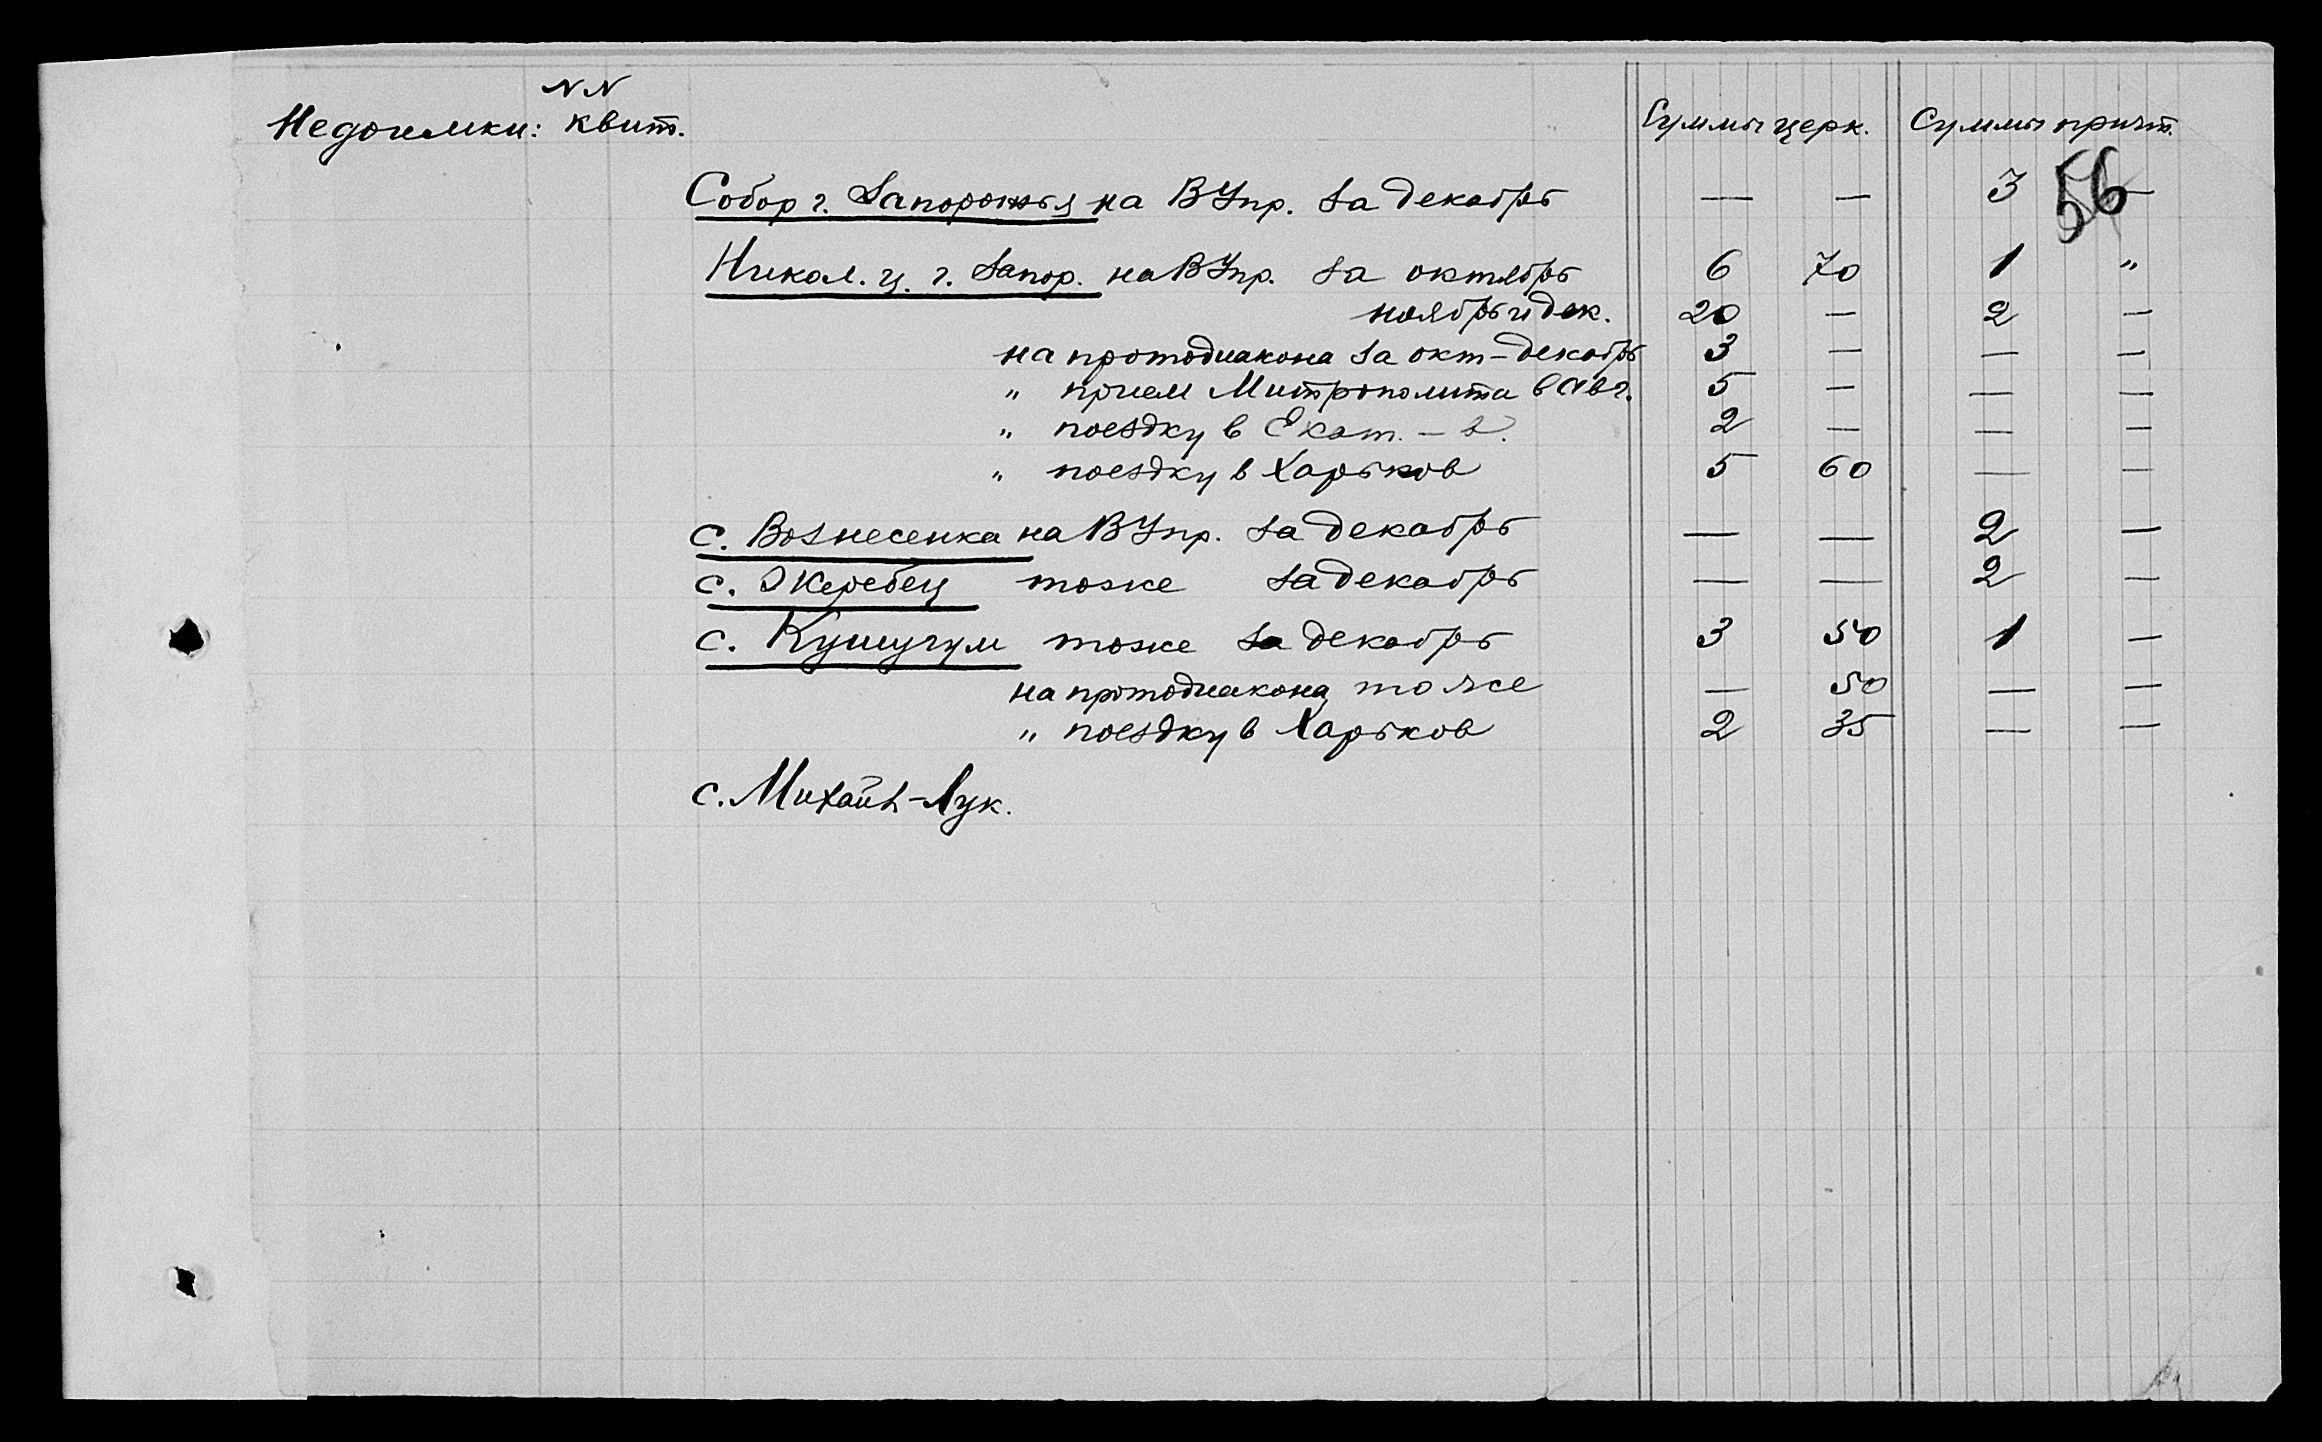 NN
Недоимки: квит. Суммы церк. Суммы причт.
56
Собор г. Запорожья на ВУпр. за декабрь — — 3 —
Никол. ц. г. Запор. на ВУпр. за октябрь 6 70 1 "
ноябрь и дек. 20 — 2 —
на протодиакона за окт-декабрь 3 — — —
" прием Митрополита в Авг. 5 — — —
" поездку в Екат. - в. 2 — — —
" поездку в Харьков 5 60 — —
с. Вознесенка на ВУпр. за декабрь — — 2 —
с. Жеребец тоже за декабрь — — 2 —
с. Кушугум тоже за декабрь 3 50 1 —
на протодиакона тоже — 50 — —
" поездку в Харьков 2 35 — —
с. Михайл-Лук.